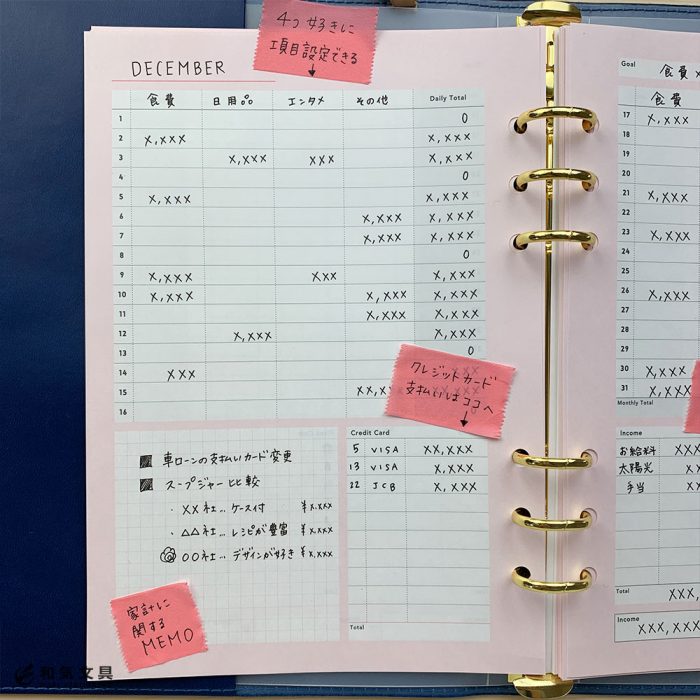 4つ好きに
項目設定できる
↓
DECEMBER
食費 日用品 エンタメ その他 Daily Total
1 0
2 X,XXX X,XXX
3 X,XXX XXX X,XXX
4 0
5 X,XXX X,XXX
6 X,XXX X,XXX
7 X,XXX X,XXX
8 0
9 X,XXX XXX X,XXX
10 X,XXX X,XXX X,XXX
11 X,XXX X,XXX
12 X,XXX X,XXX
13 0
14 XXX
15 XX,
16
クレジットカード
支払いはココへ
↓
車ローンの支払いカード変更
スープジャー比較
・XX社…ケース付 ¥X.XXX
・△△社…レシピが豊富 ¥X.XXX
○○社…デザインが好き ¥X,XXX
家計に
関する
MEMO
Credit Card
5 VISA XX,XXX
13 VISA X,XXX
22 JCB X,XXX
Total
Goal 食費
食費
17 X,XXX
18
19
20
21 X,XXX
22
23 X,XXX
24
25
26 X,XXX
27
28
29
30 X,XXX
31 X,XXX
Monthly Total
Income
お給料 XX
太陽光 X
手当 X
Total XXX,
Income
XXX,XX
和気文具